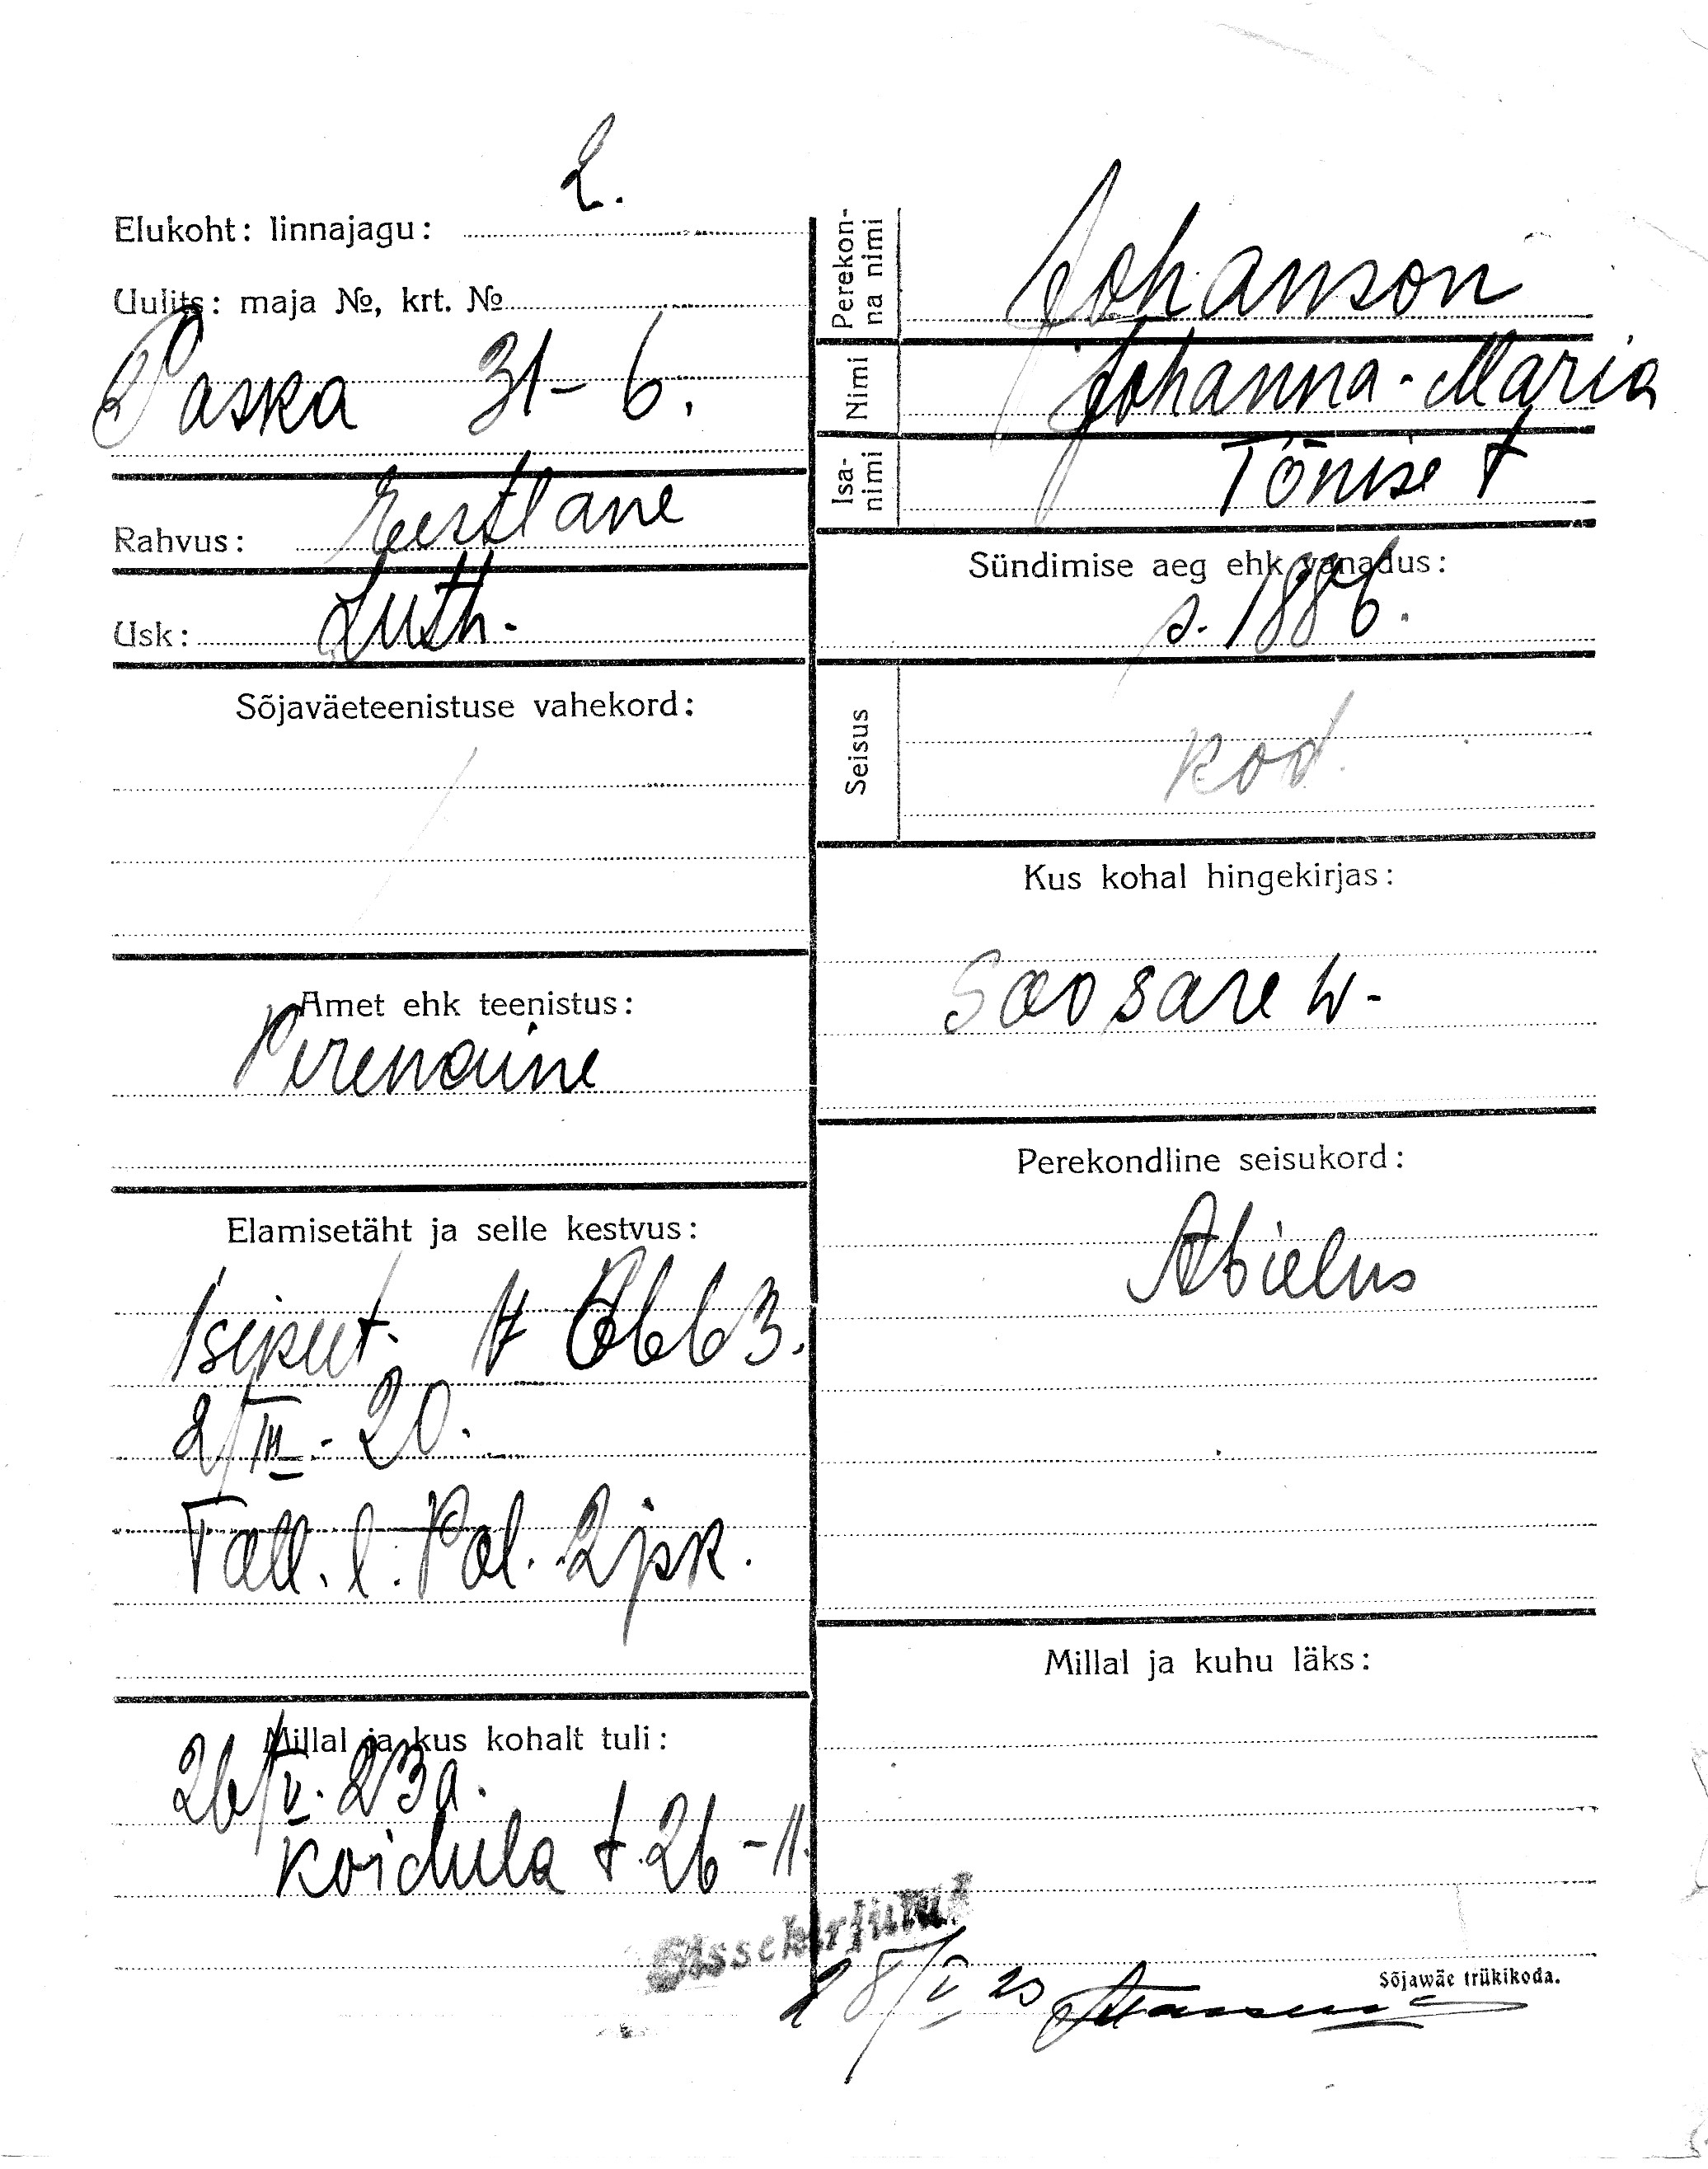 2.
Elukoht: linnajagu:
Uulits: maja №, krt. №
Paska 31-6.
Rahvus: Eestlane
Usk: Luth.
Sõjaväeteenistuse vahekord:
Amet ehk teenistus:
Perenaine
Elamisetäht ja selle kestvus:
Isiket.
2/III-20.
Tall. l. Pol. 2 jsk.
Millal ja kus kohalt tuli:
26/V. 23 a.
Koidula t. 26-11.
Perekon-
na nimi
Johanson
Nimi
Johanna-Maria
Isa-
nimi
Tõnise t
Sündimise aeg ehk vanadus:
s. 1886.
Seisus
kod.
Kus kohal hingekirjas:
Soosare w.
Perekondline seisukord:
Abielus
Millal ja kuhu läks:
Sissekirjutut
28/V 23
Sõjawäe trükikoda.